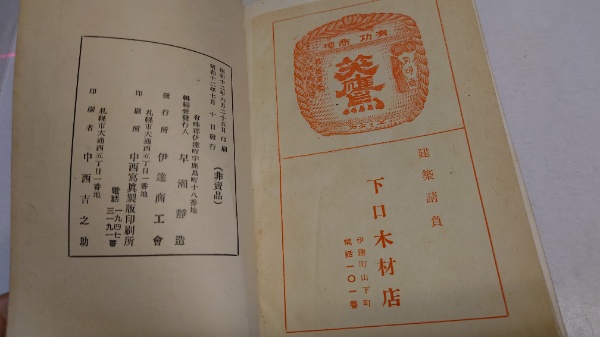 標商 功有
英鷹
建築請負
下口木材店
伊達町山下町
電話一〇一番
昭和十二年六月二十五日印刷
昭和十二年七月 十日發行
(非賣品)
有珠郡伊達町字鹿島町十八番地
編輯兼發行人 早瀬靜造
發行所 伊達商工會
札幌市大通西五丁目一番地
印刷所 中西寫眞製版印刷所
電話 一九四七 三一九一番
札幌市大通西五丁目一番地
印刷者 中西吉之助